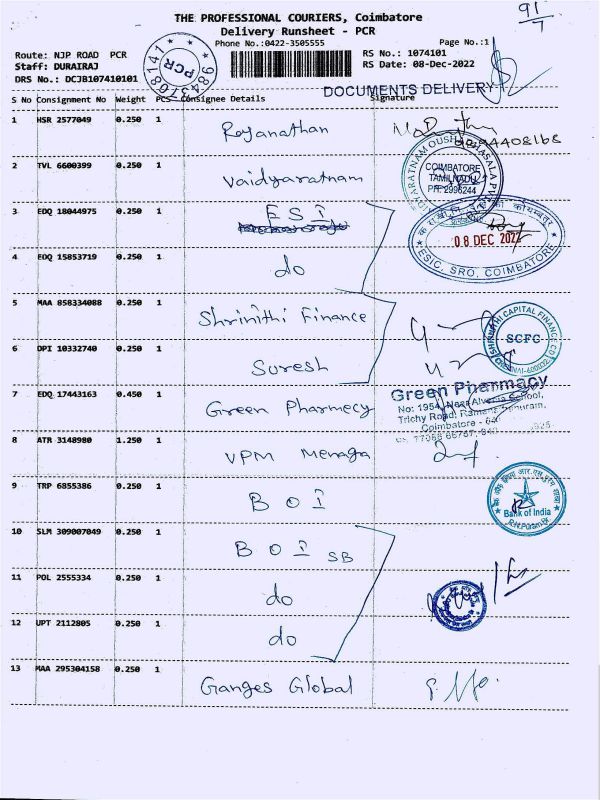 91/7
THE PROFESSIONAL COURIERS, Coimbatore
Delivery Runsheet - PCR
Phone No.:0422-3505555
Page No.:1
Route: NJP ROAD PCR
RS No.: 1074101
Staff: DURAIRAJ
RS Date: 08-Dec-2022
DRS No.: DCJB107410101
PCR
9843708141
DOCUMENTS DELIVERY
S No Consignment No Weight PCS Consignee Details Signature
1 HSR 2577049 0.250 1 Rajanathan
2 TVL 6600399 0.250 1 Vaidyaratnam
COIMBATORE
TAMILNADU
PH: 2996244
3 EDQ 18044975 0.250 1 ESI
08 DEC 2022
ESIC, SRO, COIMBATORE
4 EDQ 15853719 0.250 1 do
5 MAA 858334088 0.250 1 Shrinithi Finance
SCFC
6 OPI 10332740 0.250 1 Suresh
7 EDQ 17443163 0.450 1 Green Pharmecy
Green Pharmacy
No: 1954, Near Alvernia School,
Trichy Road,
Coimbatore
8 ATR 3148980 1.250 1 VPM Menaga
9 TRP 6855386 0.250 1 BOI
Bank of India
R.N.Puram Br.
10 SLM 309007049 0.250 1 BOI SB
11 POL 2555334 0.250 1 do
12 UPT 2112805 0.250 1 do
13 MAA 295304158 0.250 1 Ganges Global